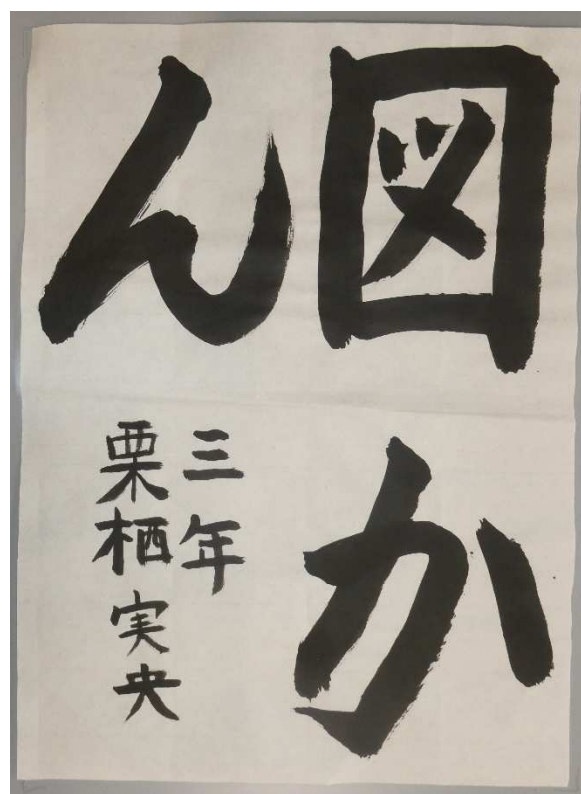 図か
ん
三年
栗栖実央